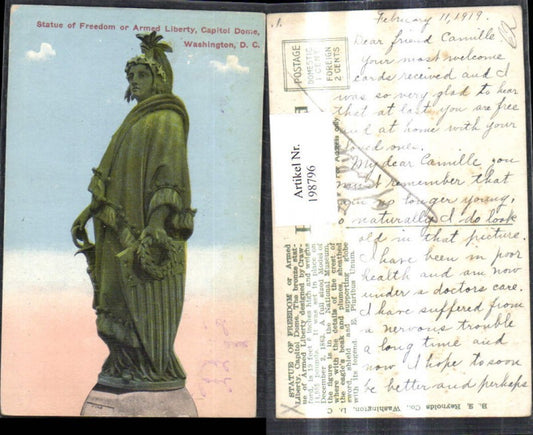 Statue of Freedom or Armed Liberty, Capitol Dome,
Washington, D. C.
February 11, 1919.
Dear friend Camille
your most welcome
cards received and I
was so very glad to hear
that at last you are free
and at home with your
loved one.
My dear Camille you
I remember that
no longer young,
naturally I do look
old in that picture.
I have been in poor
health and am now
under a doctors care.
I have suffered from
a nervous trouble
a long time and
now I hope to soon
be better and perhaps
POSTAGE
DOMESTIC
1 CENT
FOREIGN
2 CENTS
Artikel Nr.
198796
STATUE OF FREEDOM or Armed
Liberty, Capitol Dome. The bronze stat-
ue of Armed Liberty designed by Craw-
ford, is 19 feet 6 inches high and weighs
pounds. It was set in place on
December 2, 1863. A full sized Model of
the figure is in the National Museum,
where with the details of the crest of
the eagle's beak and plumes, sheathed
sword, shield and supporting globe
with its legend. E. Pluribus Unum.
B. S. Reynolds Co., Washington, D. C.